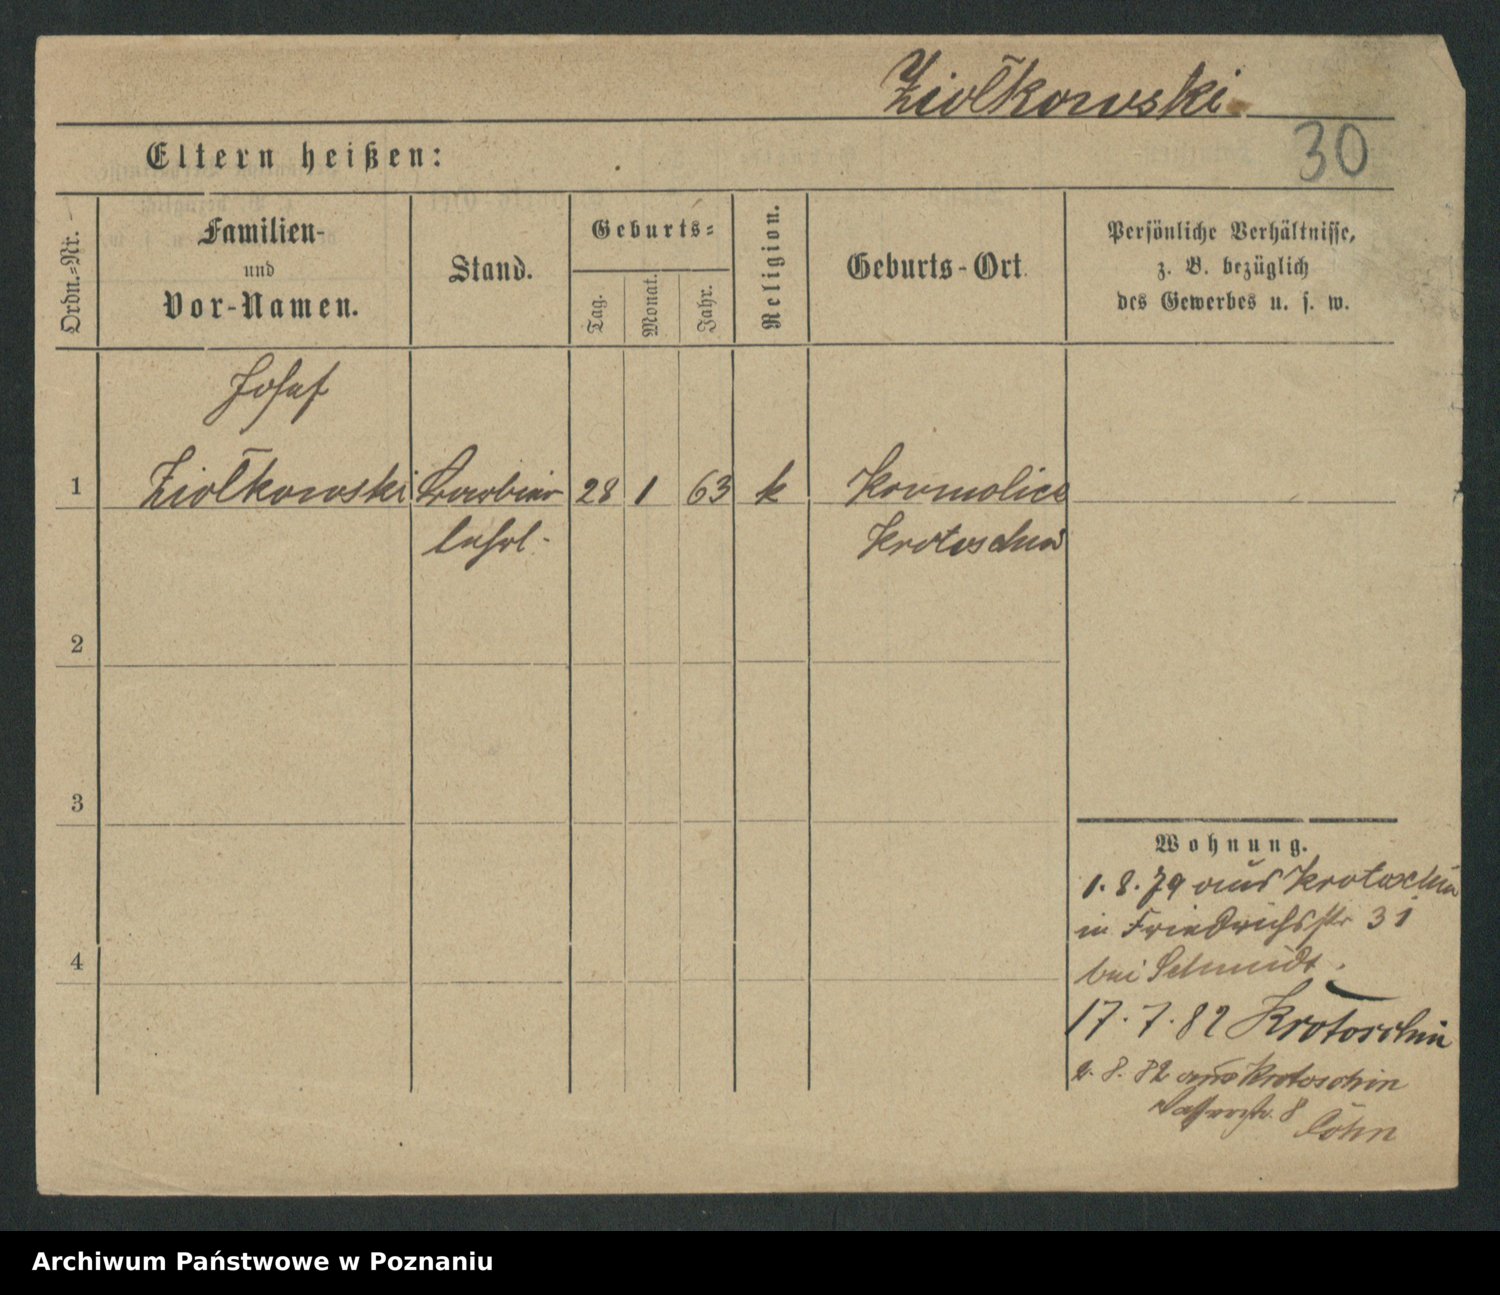 Ziołkowski
30
Eltern heißen:
Ordn.-Nr.
Familien-
und
Vor-Namen.
Stand.
Geburts-
Tag.
Monat.
Jahr.
Religion.
Geburts-Ort
Persönliche Verhältnisse,
z. B. bezüglich
des Gewerbes u. s. w.
Josef
1 Ziołkowski 28 1 63 k
Krotoschin
2
3
4
Wohnung.
1. 8. 79 aus Krotoschin
in Friedrichsstr 31
bei Schmidt.
17. 7. 82 Krotoschin
2. 8. 82 aus Krotoschin
8
Cohn
Archiwum Państwowe w Poznaniu